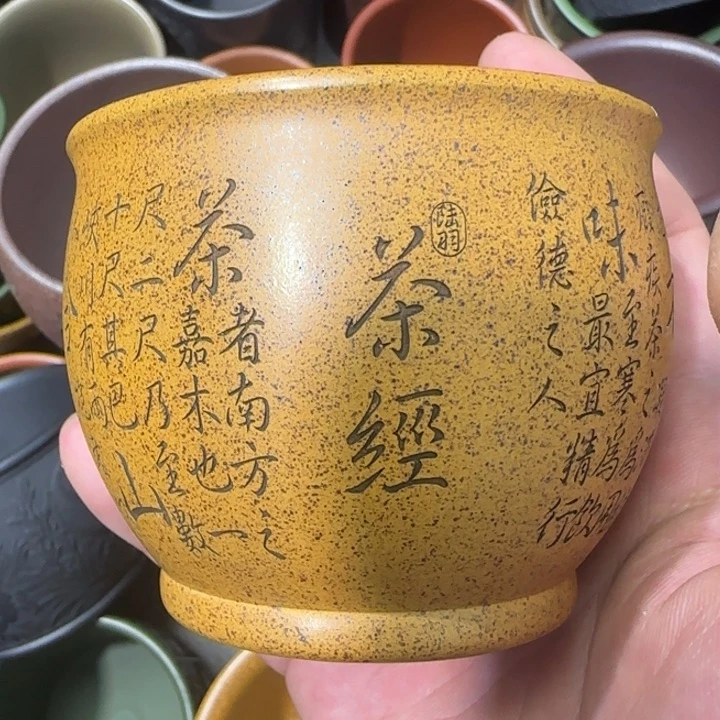 疾茶之為用
味至寒為飲
最宜精行
儉德之人
陸羽
茶經
茶者南方之
嘉木也一
尺二尺乃至數
十尺其巴山
川有兩